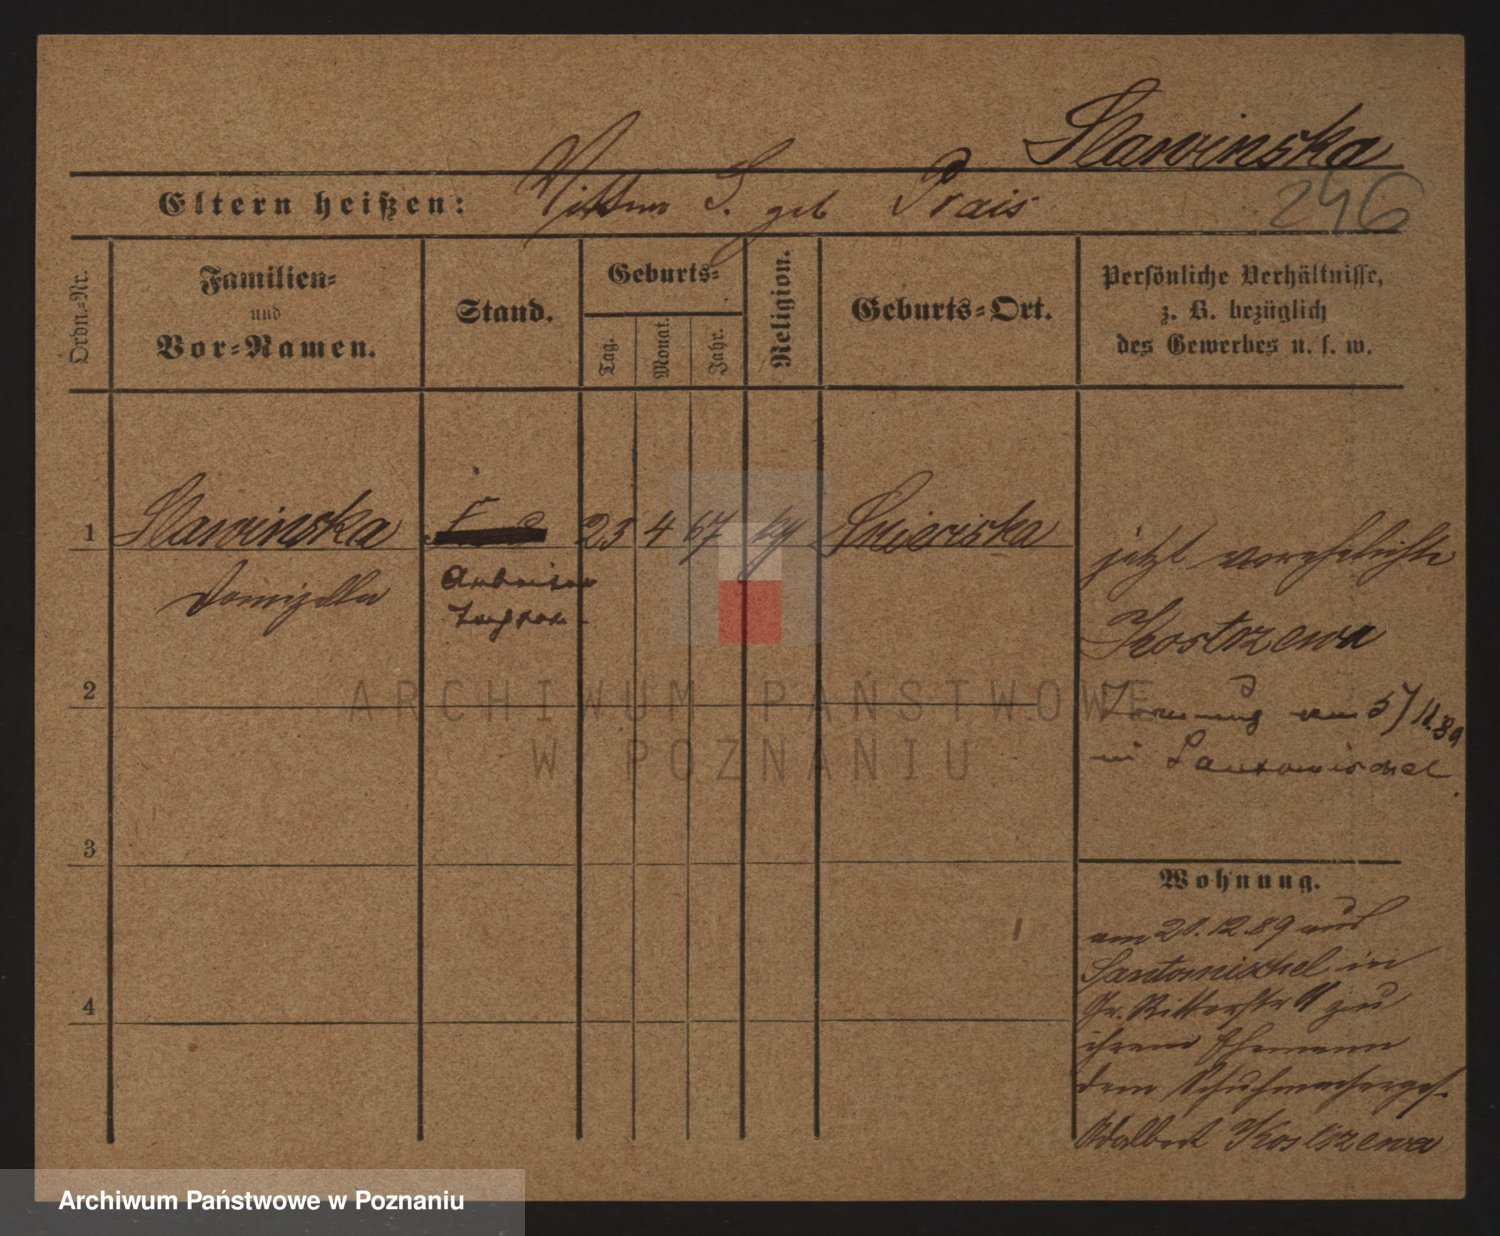 Slawinska
Eltern heißen: S. geb Prais
246
Ordn.-Nr.
Familien-
und
Vor-Namen.
Stand.
Geburts-
Tag.
Monat.
Jahr.
Religion.
Geburts-Ort.
Persönliche Verhältnisse,
z. B. bezüglich
des Gewerbes u. s. w.
1 Slawinska 23 4 67 kg
Domizella
Arbeiter
jetzt verehelichte
Kostrzewa
Trauung am 5/11.89
in Santomischel
2
3
4
Wohnung.
am 21.12.89 aus
Santomischel in
Gr. Ritterstr 11 zu
ihrem Ehemann
dem Schuhmacherges.
Adalbert Kostrzewa
ARCHIWUM PAŃSTWOWE
W POZNANIU
Archiwum Państwowe w Poznaniu